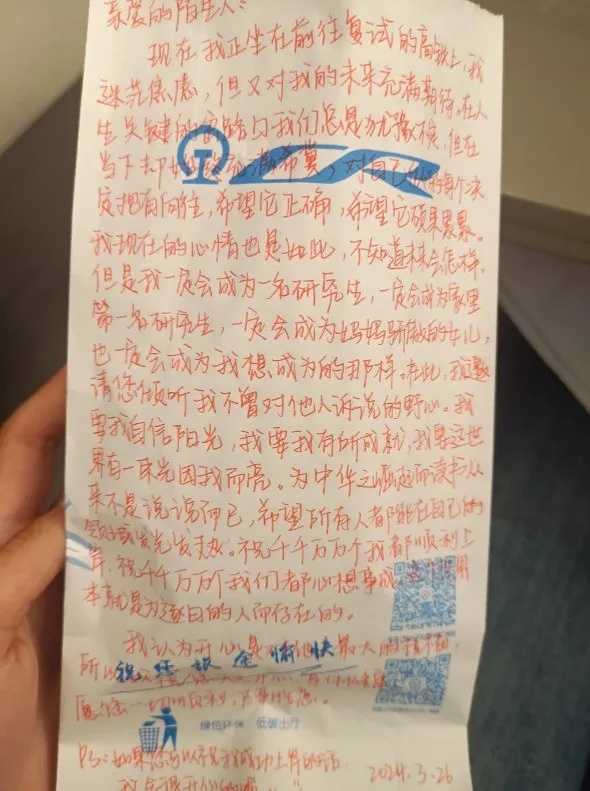 亲爱的陌生人:
现在我正坐在前往复试的高铁上,我
迷茫焦虑,但又对我的未来充满期待。在人
生关键的分岔口我们总是犹豫不决,但在
当下却始终充满希冀,对自己做的每个决
定抱有向往,希望它正确,希望它硕果累累。
我现在的心情也是如此,不知道未来会怎样。
但是我一定会成为一名研究生,一定会成为家里
第一名研究生,一定会成为妈妈骄傲的女儿,
也一定会成为我想成为的那样。在此,我
请您倾听我不曾对他人诉说的野心。我
要我自信阳光,我要我有所成就,我要这世
界有一束光因我而亮。为中华之崛起而读书从
来不是说说而已,希望所有人都能在自己的
领域发光发热。祝千千万万个我都顺利上
岸.祝千千万万个我们都心想事成。这个世界
本就是为逐日的人而存在的。
我认为开心是对 最大的
所以
祝您旅途愉快
愿您一切顺利,
绿色环保 低碳出行
PS:如果您 我成功上岸的话
我会很开心的
2024.3.26